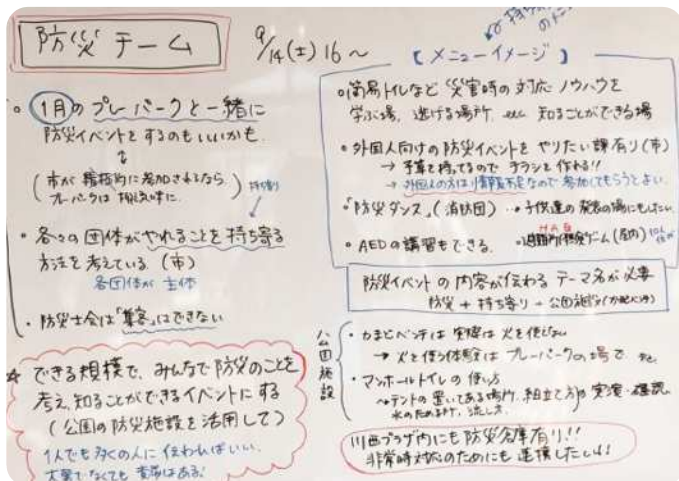 防災チーム
9/14(土)16〜
・1月のプレーパークと一緒に
防災イベントをするのもいいかも.
(市が積極的に参加されるなら
プレーパークは
持ち寄り
・各々の団体がやれることを持ち寄る
方法を考えている(市)
各団体が主体
・防災士会は「集客」はできない
☆できる規模で、みんなで防災のことを
考え、知ることができるイベントにする
(公園の防災施設を活用して)
1人でも多くの人に伝わればいい.
大勢でなくても意義はある!
【メニューイメージ】
○簡易トイレなど災害時の対応ノウハウを
学ぶ場、逃げる場所、etc 知ることができる場
・外国人向けの防災イベントをやりたい課有り(市)
→予算を持ってるのでチラシを作れる!!
→外国人の方は情報不足なので参加してもらうとよい.
・「防災ダンス」(消防団)→子供達の発表の場にもしたい.
・AEDの講習もできる.
HAG
・避難所体験ゲーム(屋内)
防災イベントの内容が伝わるテーマ名が必要
防災+持ち寄り+公園施設
公園施設
・かまどベンチは実際は火を使えない
→火を使う体験はプレーパークの場で
・マンホールトイレの使い方
→テントの置いてある場所、組立て方の実演・確認
水のため方、流し方.
川西プラザ内にも防災倉庫有り!!
非常時対応のためにも連携したい!